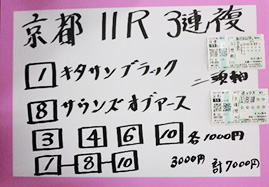 京都 11R 3連複
1 キタサンブラック
8 サウンズオブアース
二頭軸
3 4 6 10 各1000円
1-8-10 3000円 計7000円